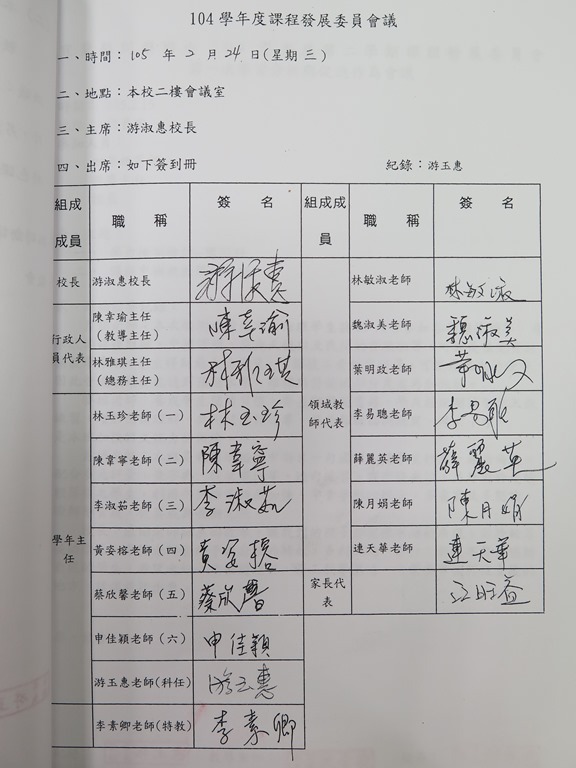 104 學年度課程發展委員會議
一、時間：105 年 2 月 24 日(星期 三)
二、地點：本校二樓會議室
三、主席：游淑惠校長
四、出席：如下簽到冊 紀錄：游玉惠
組成成員 職稱 簽名 組成成員 職稱 簽名
校長 游淑惠校長 游淑惠 林敏淑老師 林敏淑
行政人員代表 陳韋瑜主任（教導主任） 陳韋瑜 魏淑美老師 魏淑美
林雅琪主任（總務主任） 林雅琪 葉明政老師 葉明政
學年主任 林玉珍老師（一） 林玉珍 領域教師代表 李易聰老師 李易聰
陳韋寧老師（二） 陳韋寧 薛麗英老師 薛麗英
李淑茹老師（三） 李淑茹 陳月娟老師 陳月娟
黃姿榕老師（四） 黃姿榕 連天華老師 連天華
蔡欣馨老師（五） 蔡欣馨 家長代表 江旺益
申佳穎老師（六） 申佳穎
游玉惠老師(科任) 游玉惠
李素卿老師(特教) 李素卿